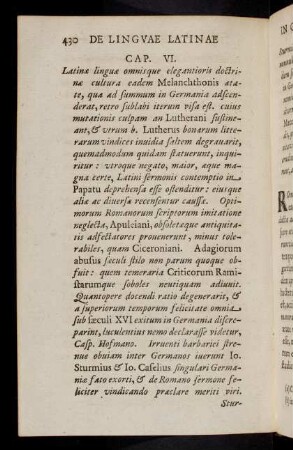 430 DE LINGVAE LATINAE
CAP. VI.
Latinæ linguæ omnisque elegantioris doctri-
næ cultura eadem Melanchthonis æta-
te, qua ad summum in Germania adscen-
derat, retro sublabi iterum visa est. cuius
mutationis culpam an Lutherani sustine-
ant, & utrum b. Lutherus bonarum litte-
rarum vindices inuidia saltem degrauarit,
quemadmodum quidam statuerunt, inqui-
ritur: vtroque negato, maior, æque ma-
gna certe, Latini sermonis contemptio in
Papatu deprehensa esse ostenditur: eiusque
aliæ ac diversæ recensentur caussæ. Opti-
morum Romanorum scriptorum imitatione
neglecta, Apuleiani, obsoletæque antiquita-
tis adfectatores prouenerunt, minus tole-
rabiles, quam Ciceroniani. Adagiorum
abusus sæculi stilo non parum quoque ob-
fuit: quem temeraria Criticorum Rami-
starumque soboles neutiquam adiuuit.
Quantopere docendi ratio degenerarit, &
a superiorum temporum felicitate omnia
sub sæculi XVI exitum in Germania disere-
parint, luculentius nemo declarasse videtur,
Casp. Hofmano. Irruenti barbariei stre-
nue obuiam inter Germanos iuerunt Io.
Sturmius & Io. Caselius singulari Germa-
niæ fato exorti, & de Romano sermone fe-
liciter vindicando præclare meriti viri.
Stur-
IN C